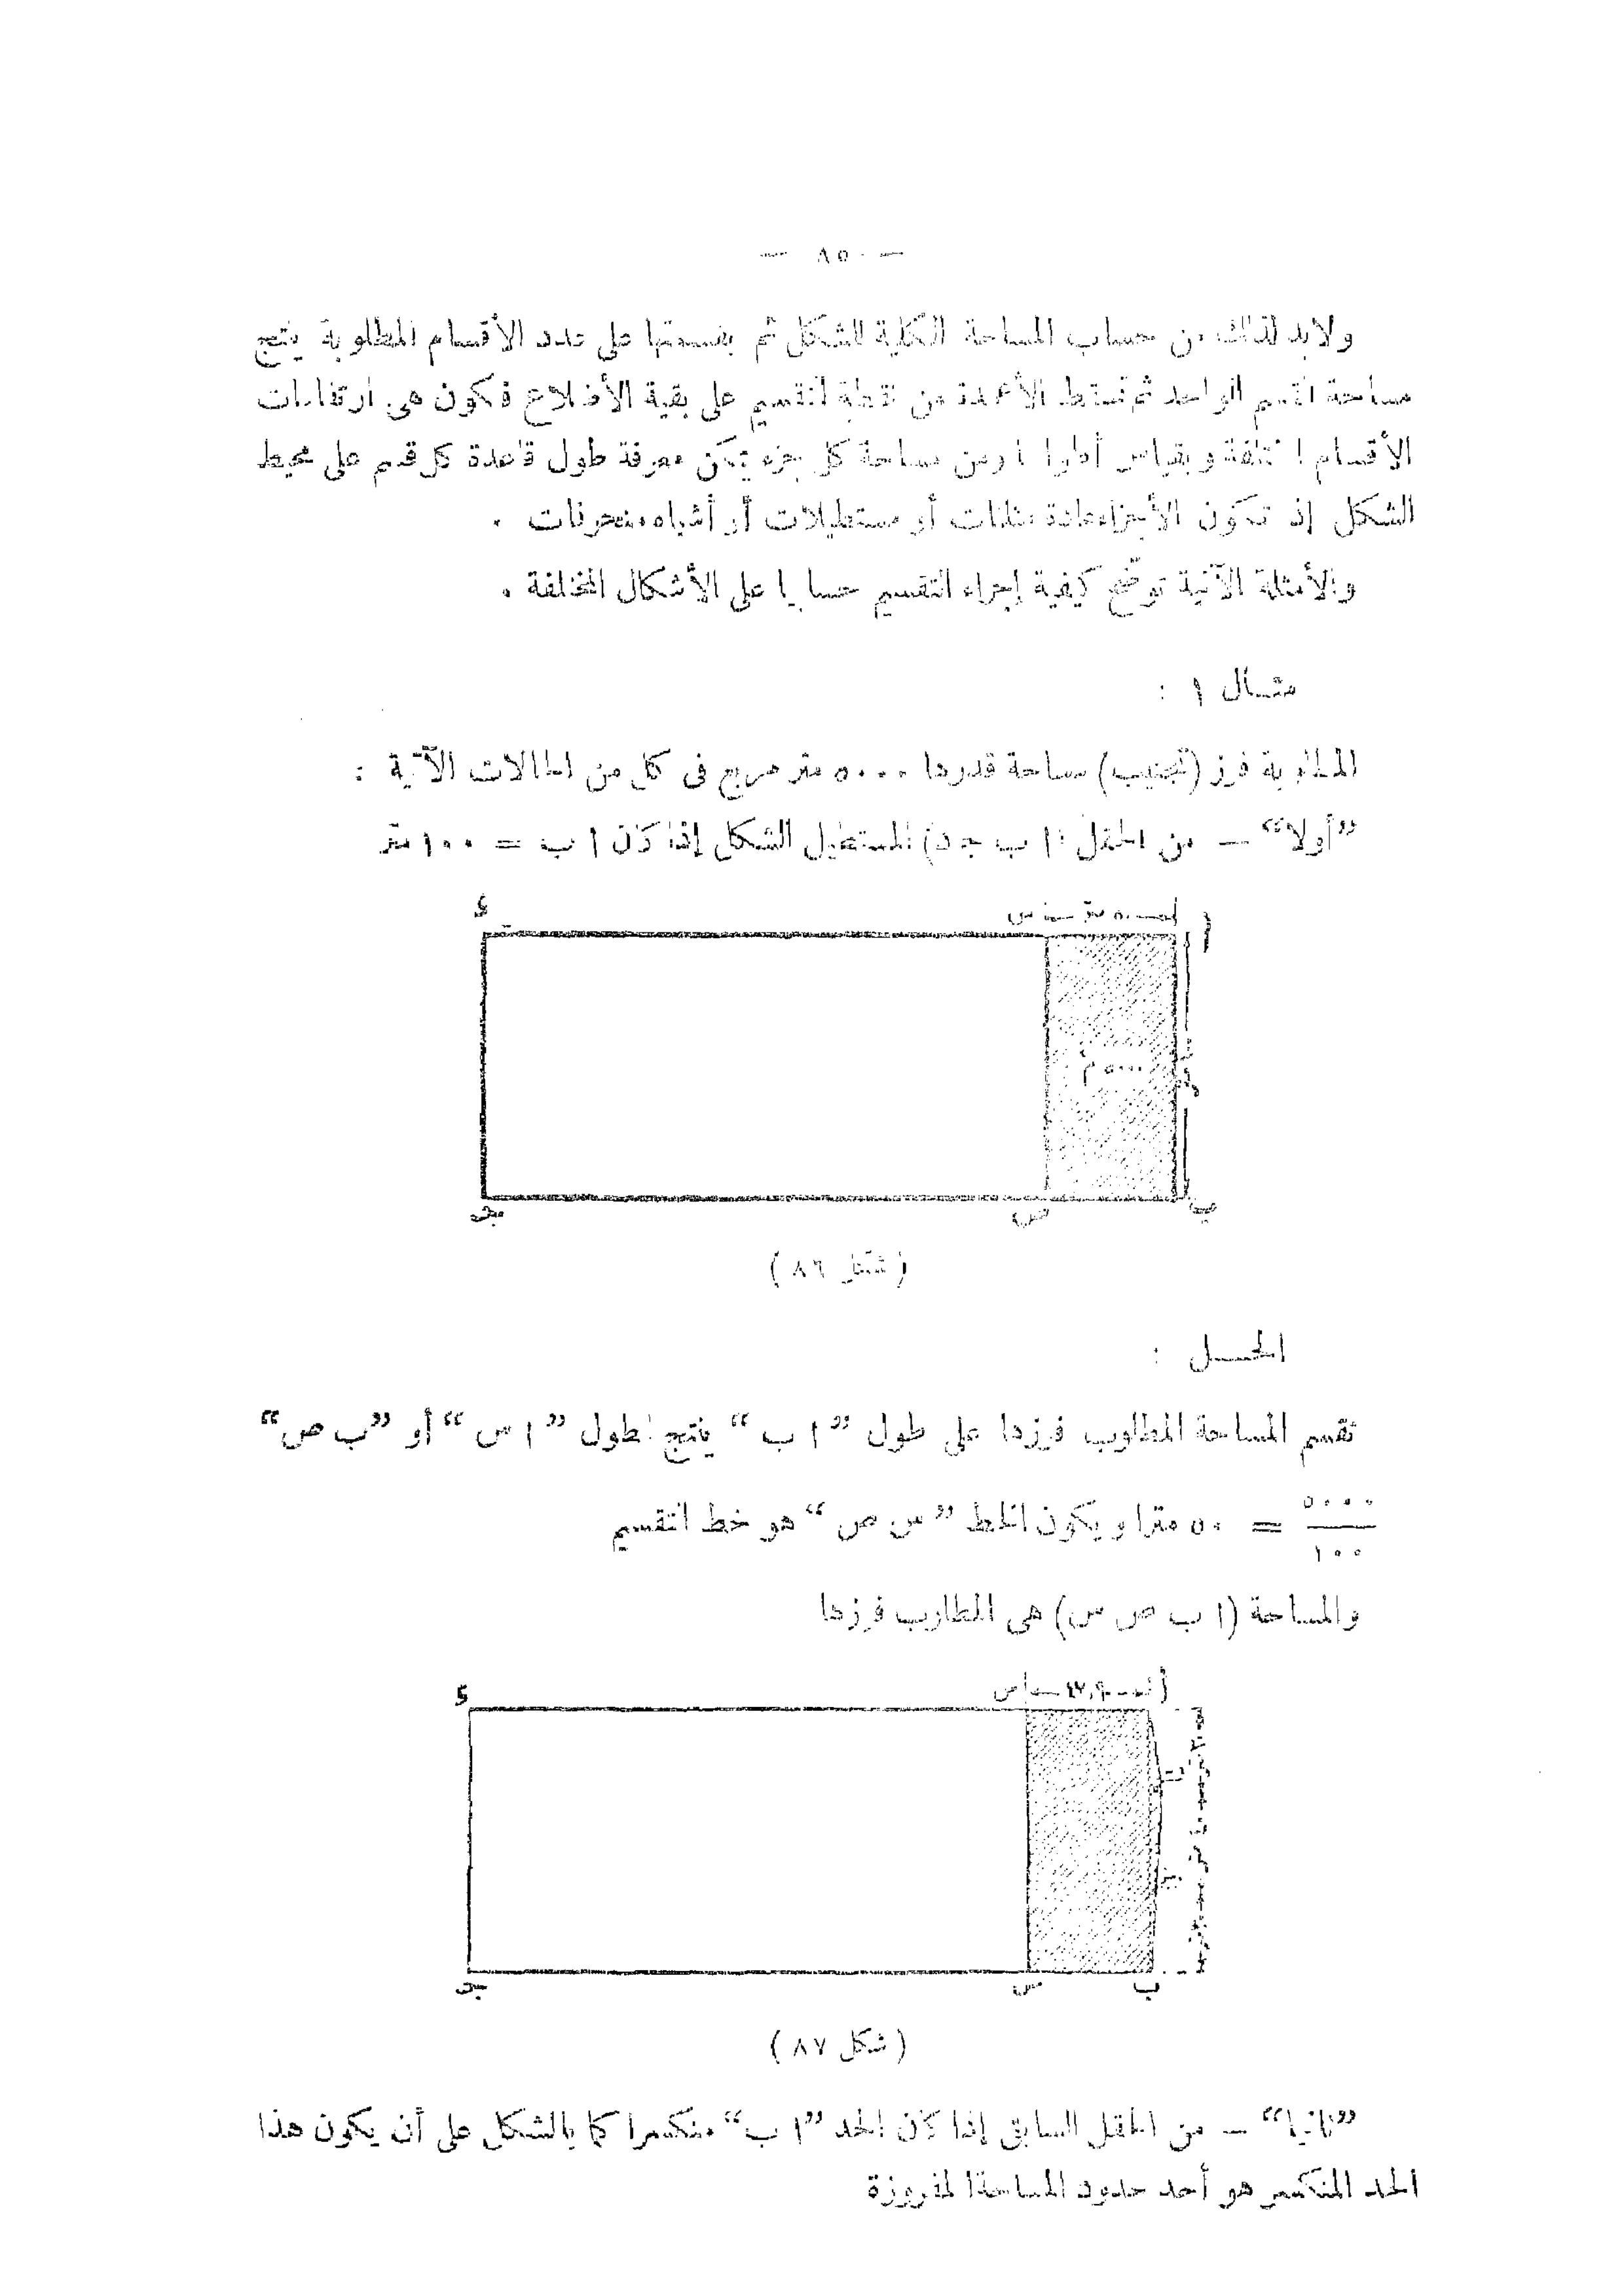 — ٨٥ —
ولابد لذلك من حساب المساحة الكلية للشكل ثم بقسمتها على عدد الأقسام المطلوبة ينتج
مساحة القسم الواحد ثم تسقط الأعمدة من نقطة التقسيم على بقية الأضلاع فتكون هى ارتفاعات
الأقسام المختلفة وبقياس أطوالها ومن مساحة كل جزء يمكن معرفة طول قاعدة كل قسم على محيط
الشكل إذ تكون الأجزاء عادة مثلثات أو مستطيلات أو أشباه منحرفات .
والأمثلة الآتية توضح كيفية إجراء التقسيم حسابيا على الأشكال المختلفة .
مثال ١ :
المطلوب فرز (تجنيب) مساحة قدرها ٥٠٠٠ متر مربع فى كل من الحالات الآتية :
”أولا“ — من الحقل (ا ب جـ د) المستطيل الشكل إذا كان ا ب = ١٠٠ متر
د
٥٠ متر س
ا
٥٠٠٠ م٢
جـ
ص
ب
(شكل ٨٦)
الحل :
تقسم المساحة المطلوب فرزها على طول ”ا ب“ ينتج طول ”ا س“ أو ”ب ص“
٥٠٠٠ / ١٠٠ = ٥٠ مترا ويكون الخط ”س ص“ هو خط التقسيم
والمساحة (ا ب ص س) هى المطلوب فرزها
د
٤٧,٩٠ س
ا
جـ
ص
ب
(شكل ٨٧)
”ثانيا“ — من الحقل السابق إذا كان الحد ”ا ب“ منكسرا كما بالشكل على أن يكون هذا
الحد المنكسر هو أحد حدود المساحة المفروزة